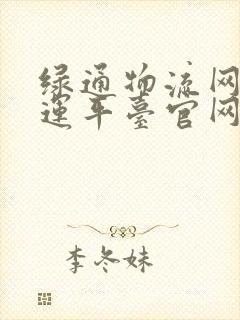 绿通物流网
运车台官网
李冬妹